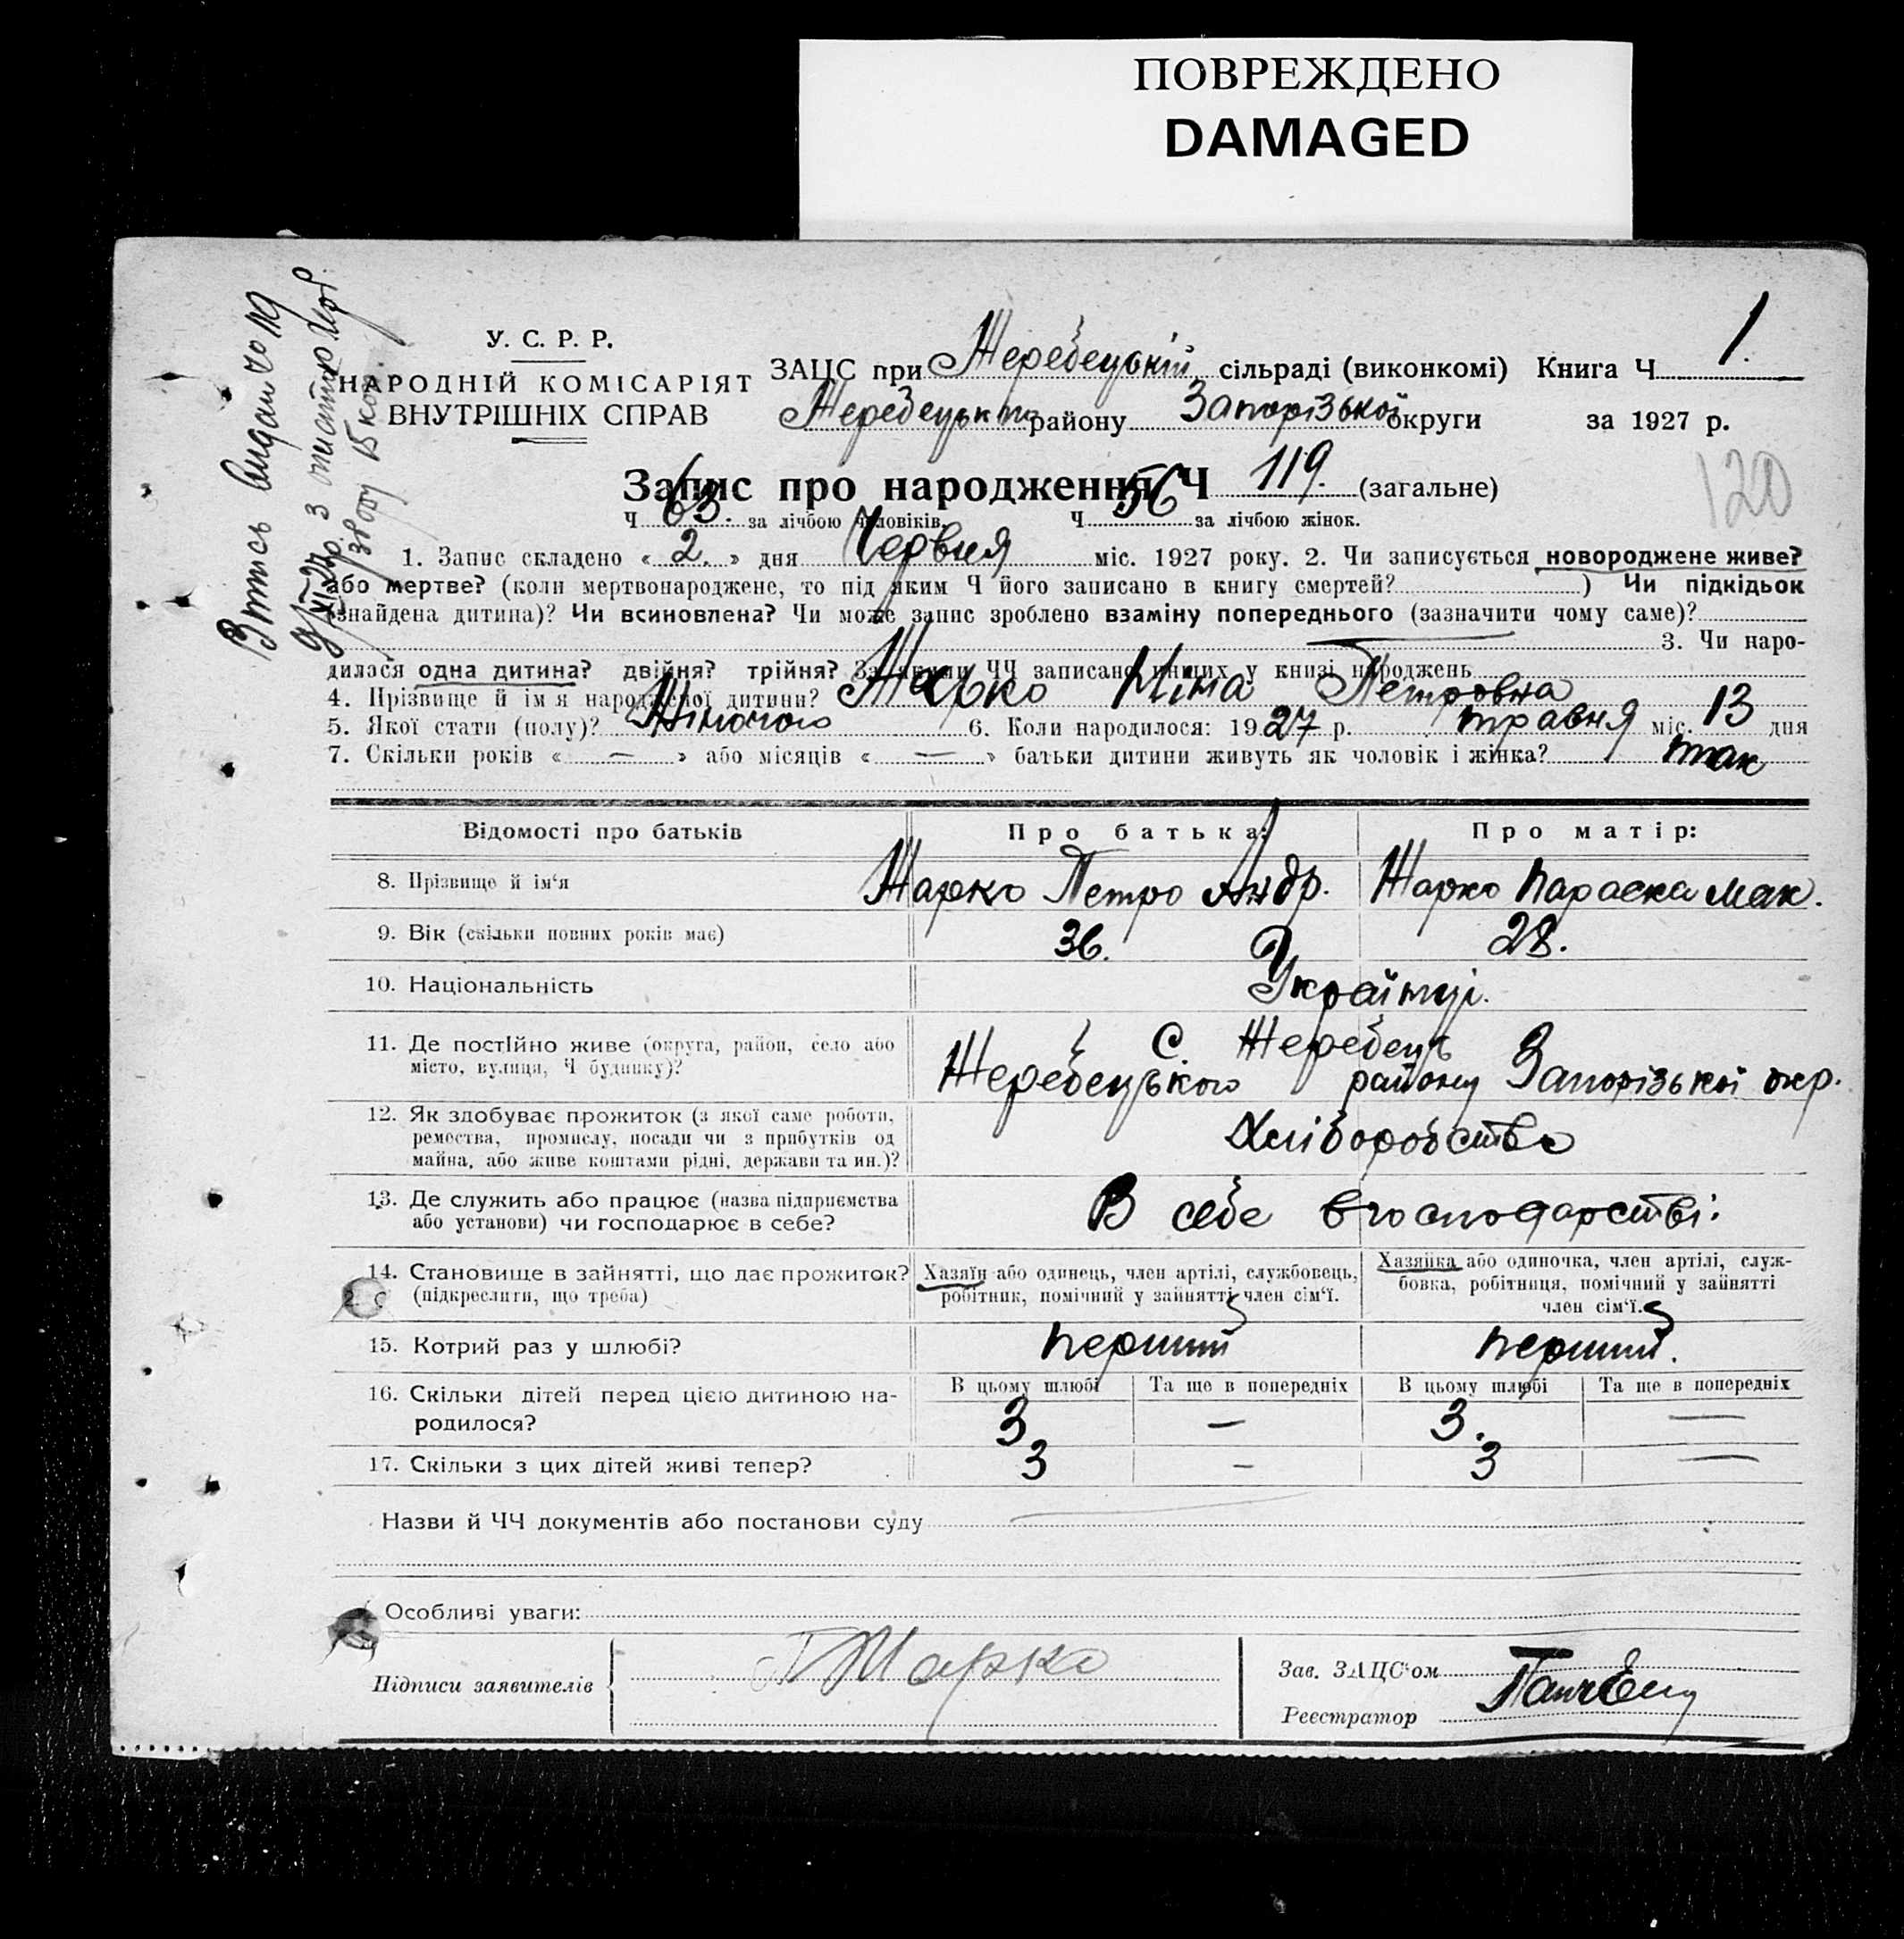 ПОВРЕЖДЕНО
DAMAGED
У. С. Р. Р.
НАРОДНІЙ КОМІСАРІЯТ
ВНУТРІШНІХ СПРАВ
ЗАЦС при Жеребецькій сільраді (виконкомі) Книга Ч 1.
Жеребецьк району Запорізької округи за 1927 р.
Запис про народження Ч 119. (загальне)
120
Ч 63. за лічбою чоловіків. Ч 56 за лічбою жінок.
1. Запис складено « 2. » дня Червня міс. 1927 року. 2. Чи записується новороджене живе?
або мертве? (коли мертвонароджене, то під яким Ч його записано в книгу смертей? ) Чи підкідьок
(знайдена дитина)? Чи всиновлена? Чи може запис зроблено взаміну попереднього (зазначити чому саме)?
3. Чи наро-
дилася одна дитина? двійня? трійня? За якими ЧЧ записано инших у книзі народжень
4. Прізвище й ім'я народженої дитини? Жарко Ніна Петровна
5. Якої стати (полу)? Жіночою 6. Коли народилося: 1927 р. травня міс. 13 дня
7. Скільки років « — » або місяців « — » батьки дитини живуть як чоловік і жінка? так
Відомості про батьків Про батька: Про матір:
8. Прізвище й ім'я Жарко Петро Андр. Жарко Параска Мак.
9. Вік (скільки повних років має) 36. 28.
10. Національність Українці.
11. Де постійно живе (округа, район, село або С. Жеребець
місто, вулиця, Ч будинку)? Жеребецького району Запорізької окр.
12. Як здобуває прожиток (з якої саме роботи,
ремества, промислу, посади чи з прибутків од Хліборобство
майна, або живе коштами рідні, держави та ин.)?
13. Де служить або працює (назва підприємства В себе в господарстві.
або установи) чи господарює в себе?
14. Становище в зайнятті, що дає прожиток? Хазяїн або одинець, член артілі, службовець, Хазяйка або одиночка, член артілі, служ-
(підкреслити, що треба) робітник, помічний у зайнятті член сім'ї. бовка, робітниця, помічний у зайнятті
член сім'ї.
15. Котрий раз у шлюбі? перший перший.
16. Скільки дітей перед цією дитиною на- В цьому шлюбі Та ще в попередніх В цьому шлюбі Та ще в попередніх
родилося? 3 — 3. —
17. Скільки з цих дітей живі тепер? 3 — 3 —
Назви й ЧЧ документів або постанови суду
Особливі уваги:
Підписи заявителів Жарко Зав. ЗАЦС'ом
Реєстратор